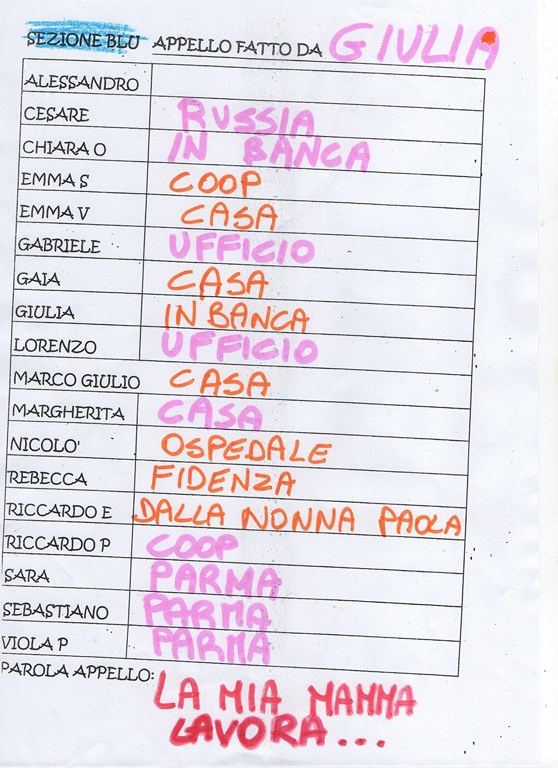 SEZIONE BLU APPELLO FATTO DA GIULIA
ALESSANDRO
CESARE RUSSIA
CHIARA O IN BANCA
EMMA S COOP
EMMA V CASA
GABRIELE UFFICIO
GAIA CASA
GIULIA IN BANCA
LORENZO UFFICIO
MARCO GIULIO CASA
MARGHERITA CASA
NICOLO' OSPEDALE
REBECCA FIDENZA
RICCARDO E DALLA NONNA PAOLA
RICCARDO P COOP
SARA PARMA
SEBASTIANO PARMA
VIOLA P PARMA
PAROLA APPELLO: LA MIA MAMMA
LAVORA...